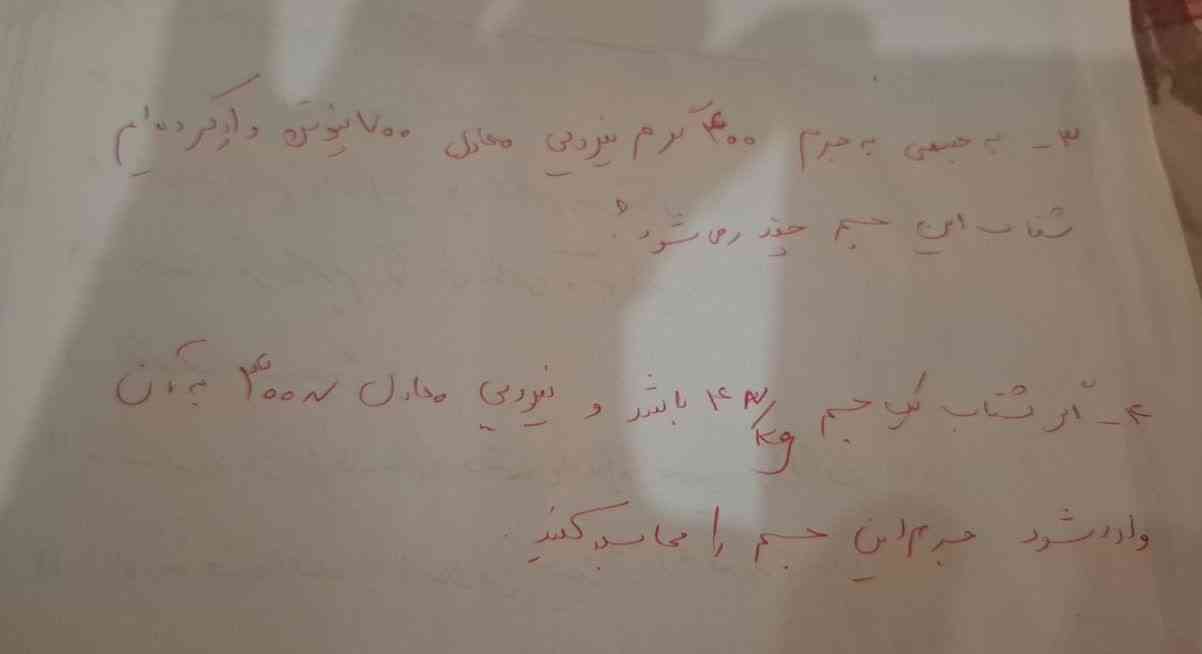 ۳- به جسمی به جرم ۴۰۰ گرم نیرویی معادل ۷۰۰ نیوتن وارد کرده ایم
شتاب این جسم چقدر می شود؟
۴- اگر شتاب یک جسم ۴ N/kg باشد و نیرویی معادل ۳۰۰ N به آن
وارد شود جرم این جسم را محاسبه کنید.